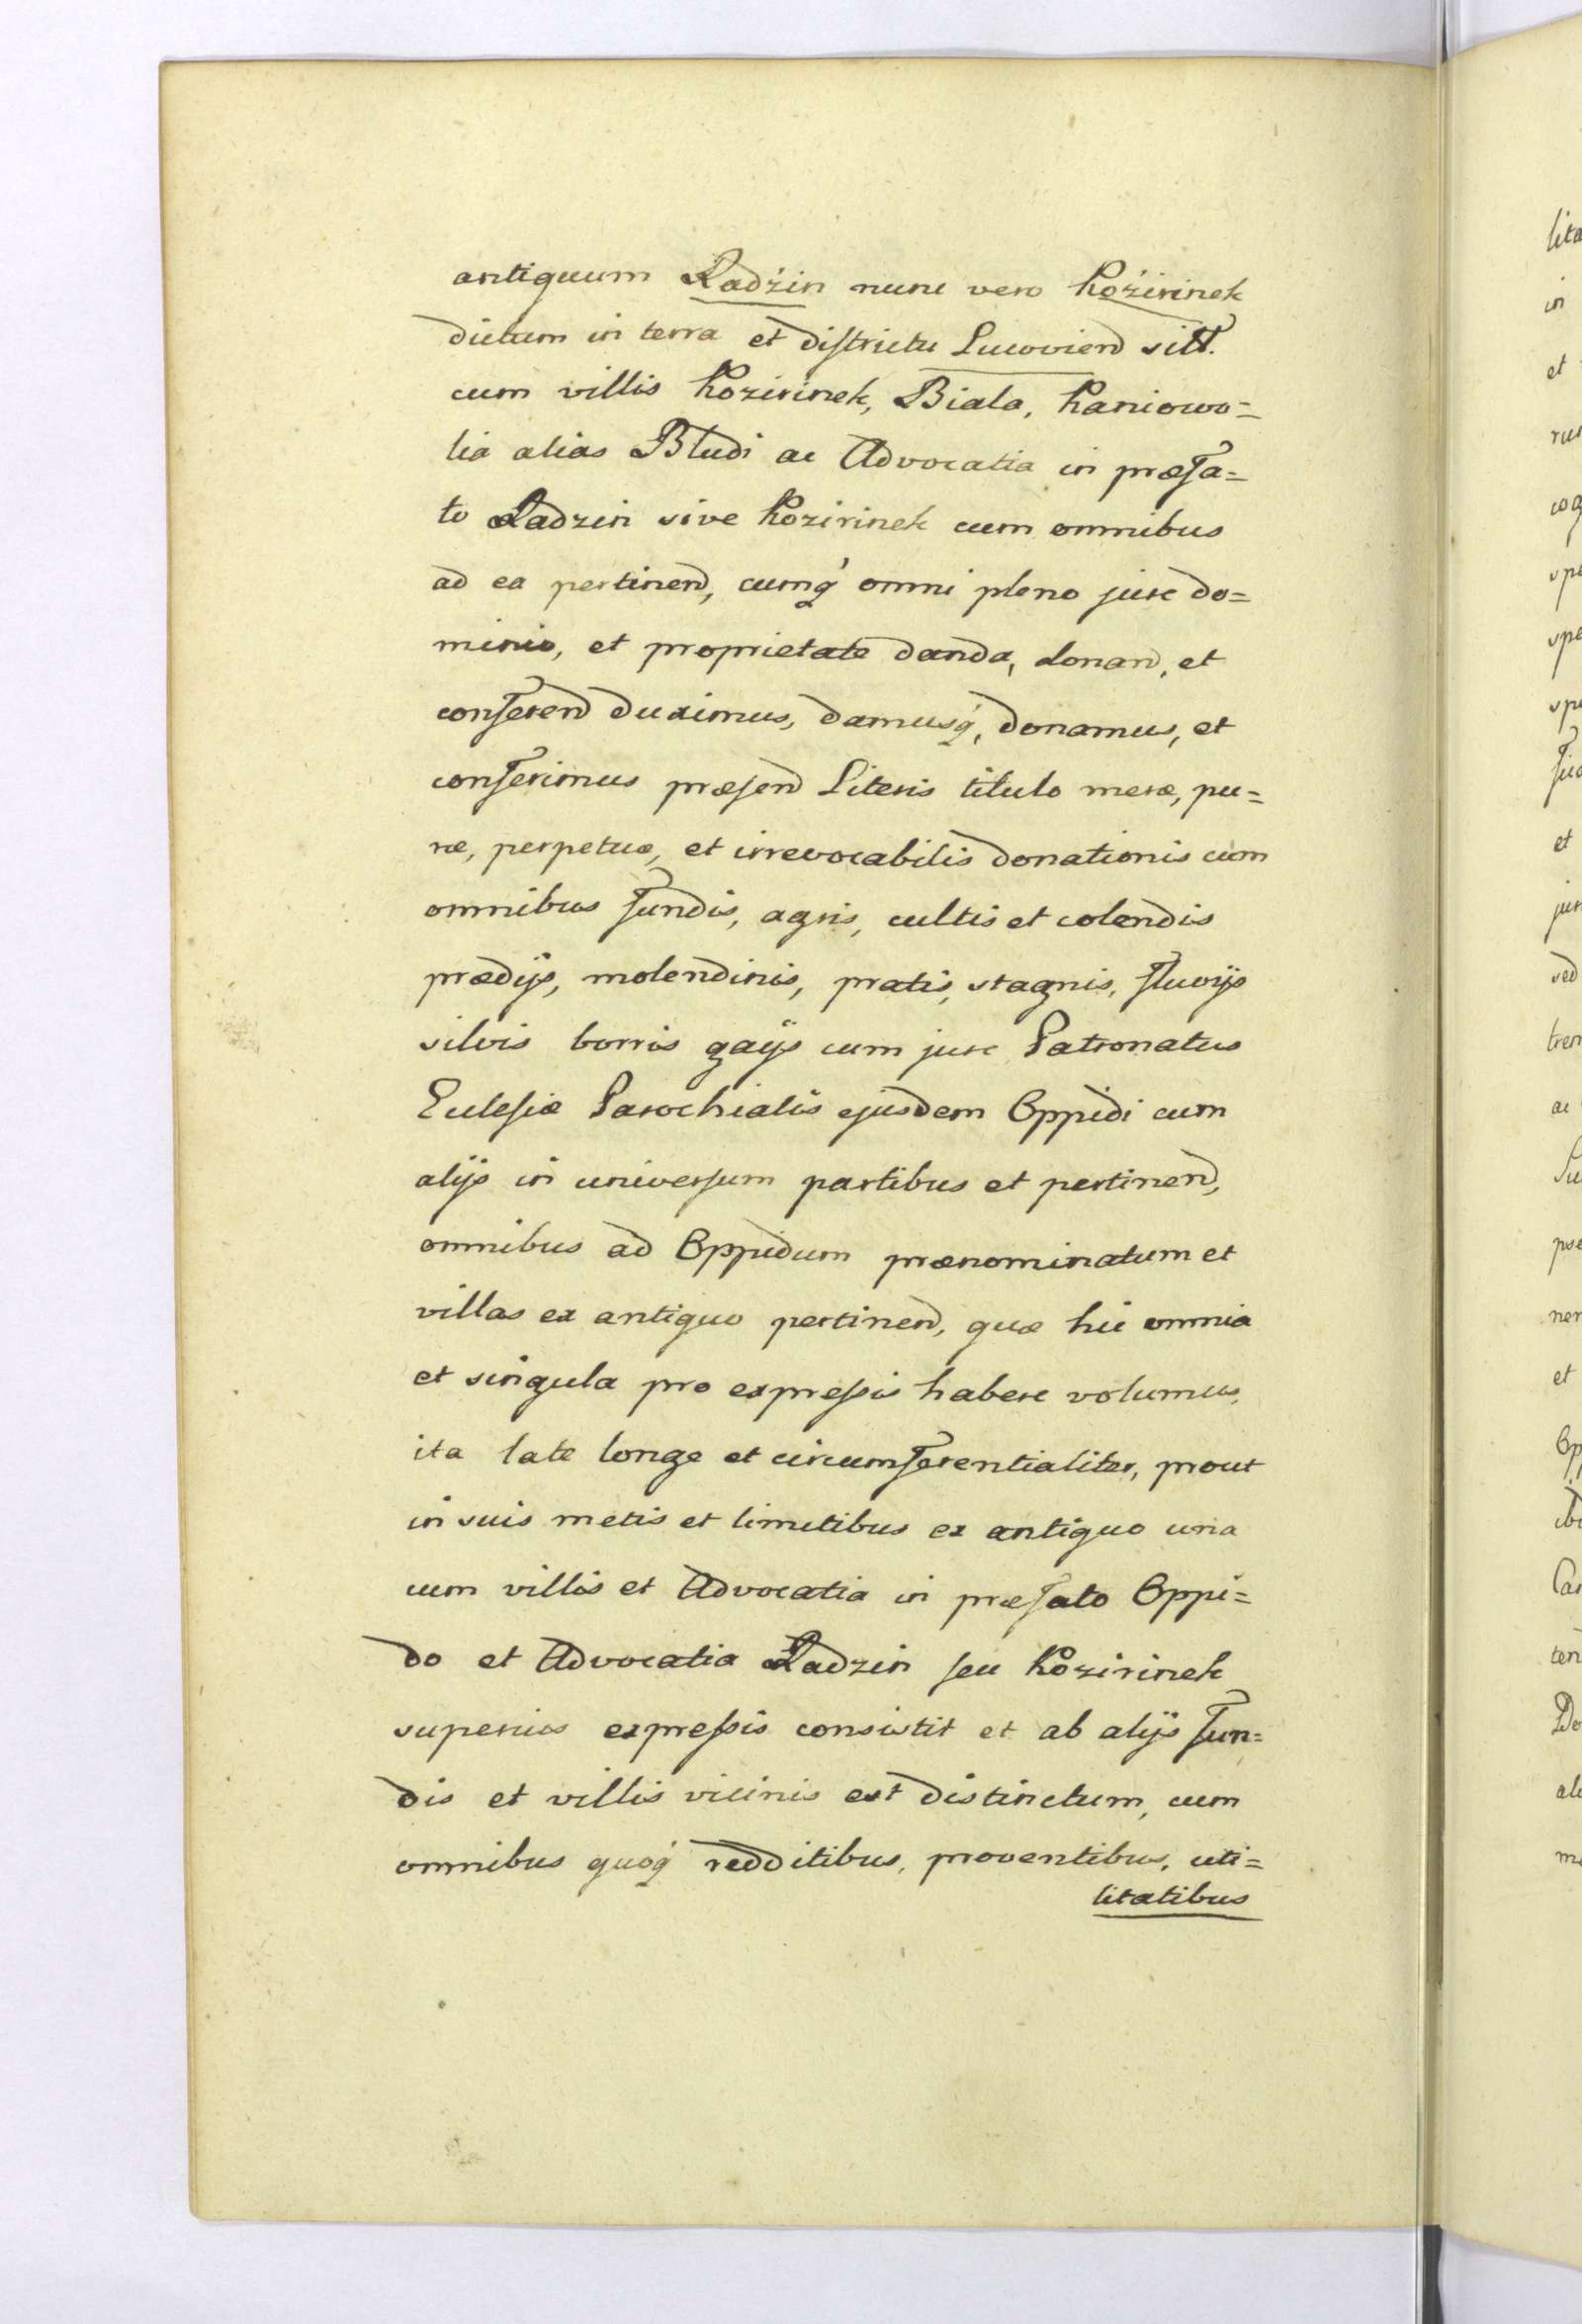 antiquum Radzin nunc vero Kozirinek
dictum in terra et districtu Lucoviend sitt.
cum villis Kozirinek, Biala, Kaniowo=
lia alias Bludi ac Advocatia in præfa=
to Radzin sive Kozirinek cum omnibus
ad ea pertinend, cumq' omni pleno jure do=
minio, et proprietate danda, donand, et
conferend duximus, damusq', donamus, et
conferimus præsend Literis titulo meræ, pu=
ræ, perpetuæ, et irrevocabilis donationis cum
omnibus fundis, agris, cultis et colendis
prædijs, molendinis, pratis, stagnis, fluvijs
silvis borris gaijs cum jure Patronatus
Eclesiæ Parochialis ejusdem Oppidi cum
alijs in universum partibus et pertinend,
omnibus ad Oppidum prænominatum et
villas ex antiquo pertinend, quæ hic omnia
et singula pro expressis habere volumus,
ita late longe et circumferentialiter, prout
in suis metis et limitibus ex antiquo una
cum villis et Advocatia in præfato Oppi=
do et Advocatia Radzin seu Kozirinek
superius expressis consistit et ab alijs fun=
dis et villis vicinis est distinctum, cum
omnibus quoq' redditibus, proventibus, uti=
litatibus